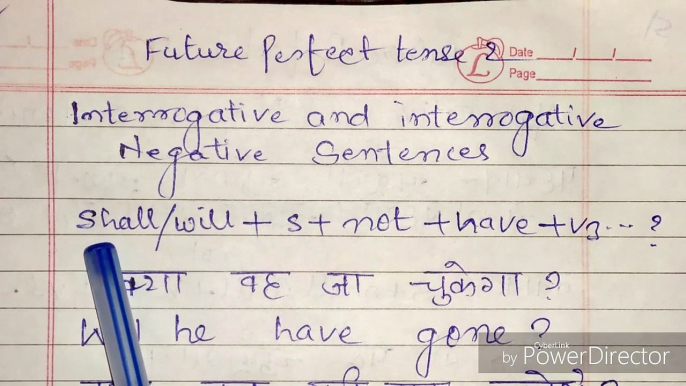 Future Perfect tense 2
Date / / /
Page
Interrogative and interrogative
Negative Sentences
Shall/will + s + not + have + v3 ... ?
क्या वह जा चुकेगा ?
he have gone ?
CyberLink
by PowerDirector